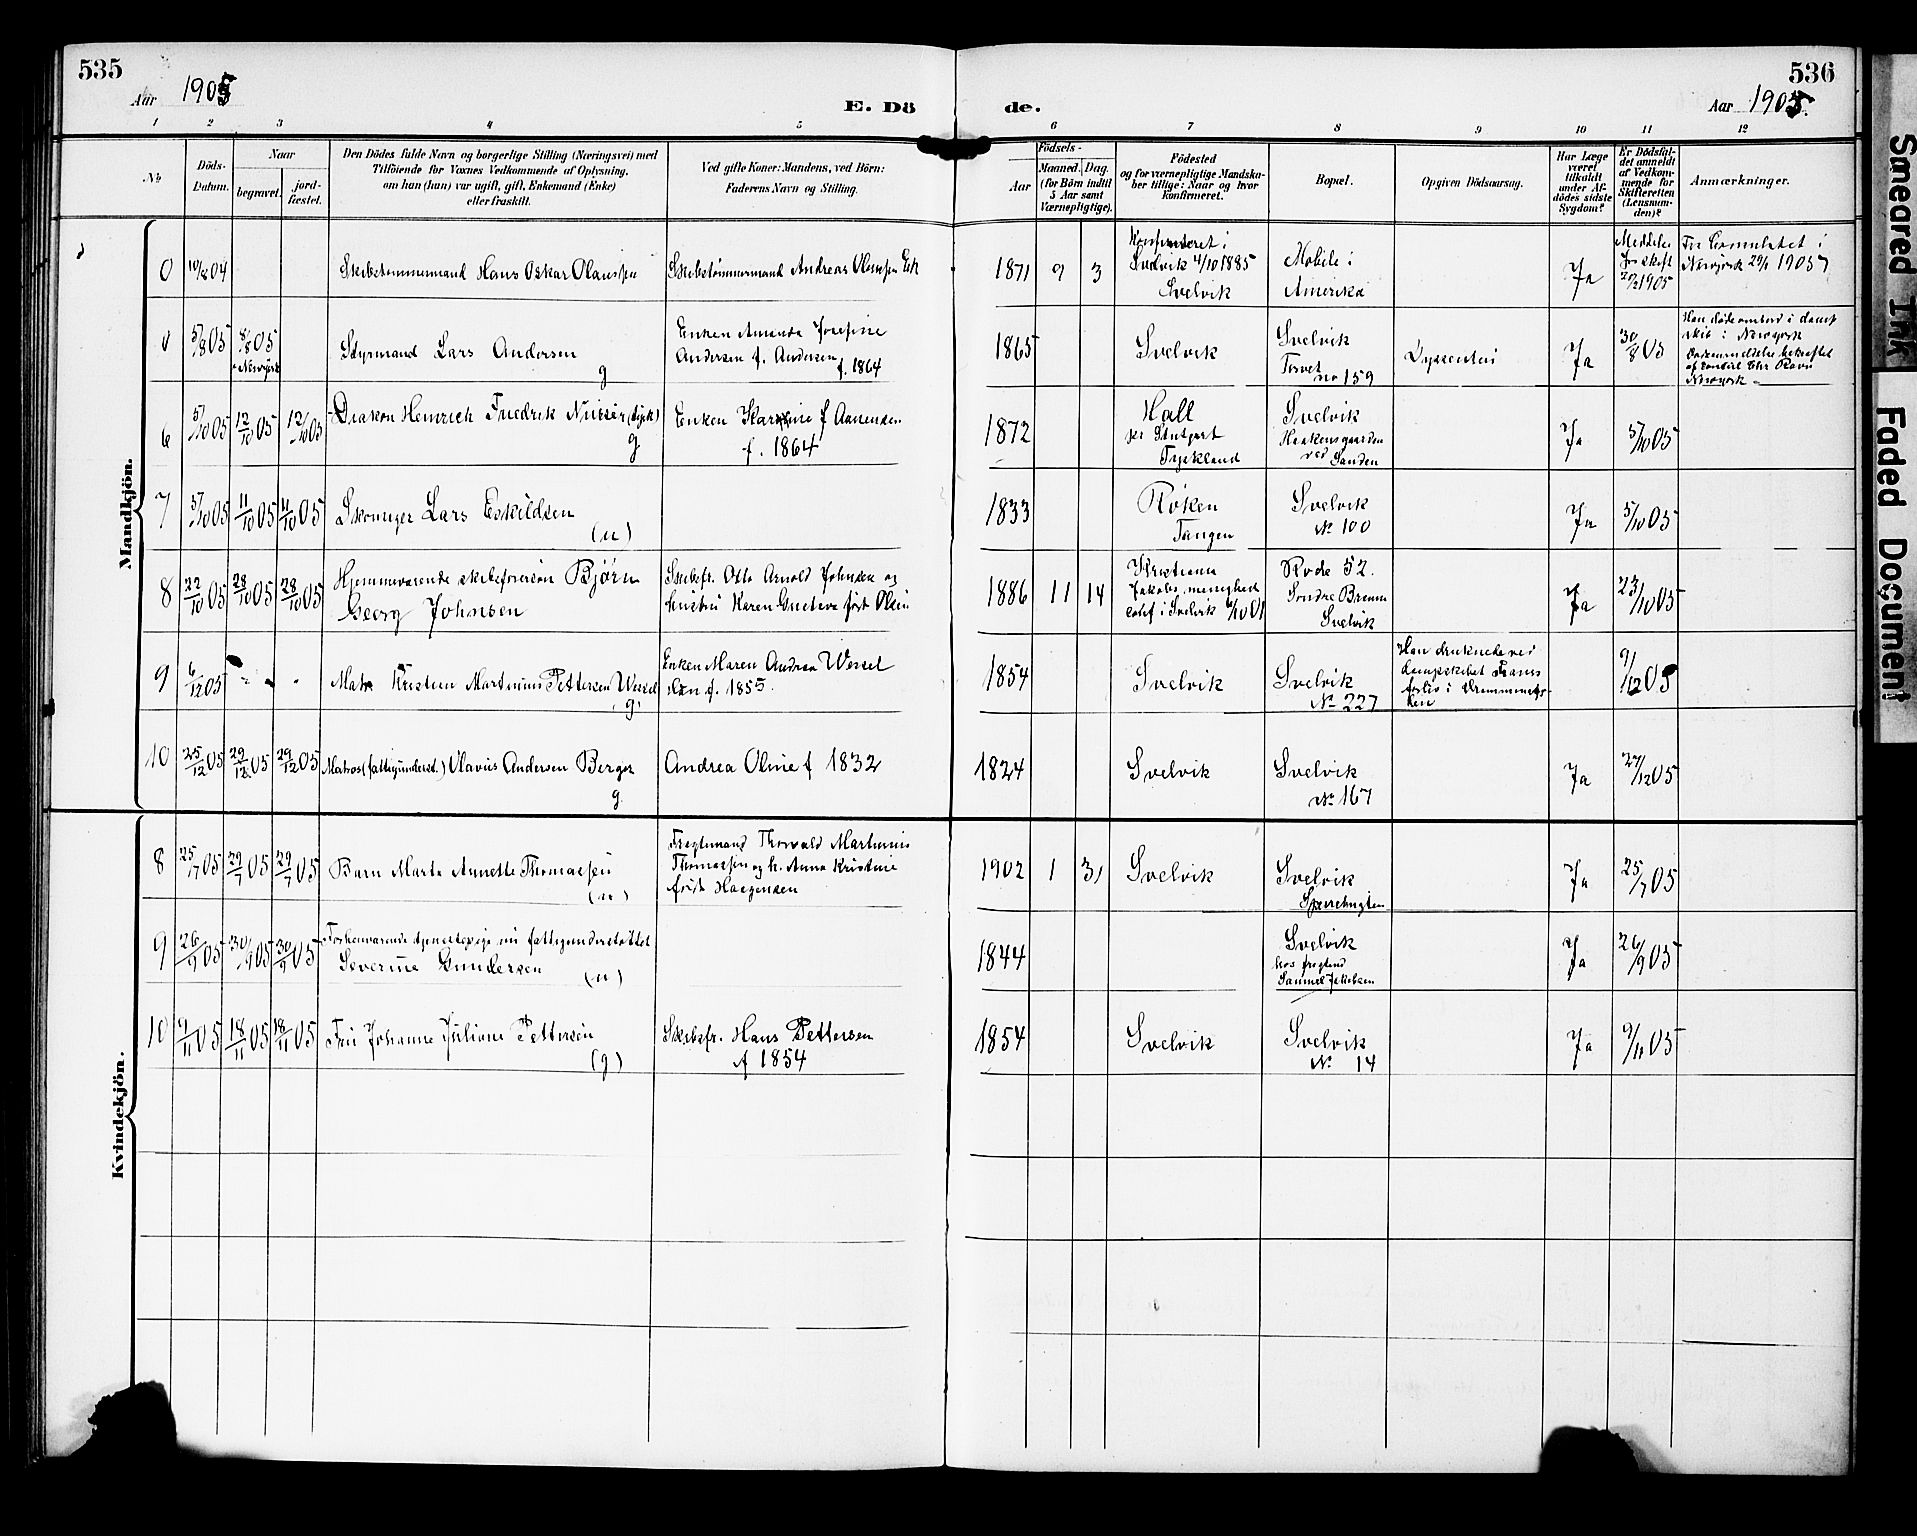 535
Aar 1905
E. Dö
de.
536
Aar 1905.
1 2 3 4 5 6 7 8 9 10 11 12
No
Döds-
Datum.
Naar
begravet.
jord-
fæstet.
Den Dödes fulde Navn og borgerlige Stilling (Næringsvei) med
Tilföiende for Voxnes Vedkommende af Oplysning,
om han (hun) var ugift, gift, Enkemand (Enke)
eller fraskilt.
Ved gifte Koner: Mandens, ved Börn:
Faderens Navn og Stilling.
Födsels-
Aar
Maaned. Dag.
(for Börn indtil
5 Aar samt
Værnepligtige).
Födested
og for værnepligtige Mandska-
ber tillige: Naar og hvor
konfirmeret.
Bopæl.
Opgiven Dödsaarsag.
Har Læge
været
tilkaldt
under Af-
dödes sidste
Sygdom?
Er Dödsfal-
det anmeldt
af Vedkom-
mende for
Skifteretten
(Lensman-
den)?
Anmærkninger.
Mandkjön.
0
04
Skibstømmermand Hans Oskar Olaussen
Skibstømmermand Andreas Olaussen Eek
1871 9 3
Konfirmeret i
Svelvik 4/10 1885
Svelvik
Mobile i
Amerika
Ja
1905
For Consulatet i
Newyork 29/1 1905
0
5/8 05
8/8 05
Newyork
Styrmand Lars Andersen
g
Enken Amanda Josefine
Andersen f. Andersen
f. 1864
1865
Svelvik
Svelvik
Torvet
no 159
Dyssenteri
Ja
30/8 05
Han døde ombord i damp
skib i Newyork
af konsul Chr Ravn
Newyork
6
5/10 05
12/10 05
12/10 05
Diakon Heinrich Fredrik (tysk)
g
Enken f Aanensen
f. 1864
1872
Hall
pr Stutgart
Tyskland
Svelvik
Haakensgaarden
ved Sanden
Ja
5/10 05
7
5/10 05
11/10 05
11/10 05
Skomager Lars Eskildsen
(u)
1833
Røken
Tangen
Svelvik
No 100
Ja
5/10 05
8
22/10 05
28/10 05
28/10 05
Hjemmeværende skibsførersøn Bjørn
Georg Johnsen
Skibsfr. Otto Arnold Johnsen og
hustru Karen Gustava født Olsen
1886 11 14
Kristiania
Jakobs menighed
conf i Svelvik 6/10 01
Rode 52.
Søndre Brenna
Svelvik
Ja
23/10 05
9
6/12 05
" " "
Matr Kristian Martinius Pettersen Wessel
g.
Enken Maren Andrea Wessel
f. 1855.
1854
Svelvik
Svelvik
No 227
Han druknede ved
dampskibet Frams
forlis i Drammensfjor-
den
9/12 05
10
25/12 05
29/12 05
29/12 05
Matros (fattigunderst.) Olavus Andersen Berger
g.
Andrea Oline f 1832
1824
Svelvik
Svelvik
No 167
Ja
27/12 05
Kvindekjön.
8
25/7 05
29/7 05
29/7 05
Barn Marta Annette Thomassen
(u)
Fragtemand Thorvald Martinius
Thomassen og h. Anna Kristine
født Haagensen
1902 1 31
Svelvik
Svelvik
Ja
25/7 05
9
26/9 05
30/9 05
30/9 05
Forhenværende tjenestepige nu fattigunderstøttet
Severine Gundersen
(u)
1844
Svelvik
hos fragtmd
Samuel Jakobsen
Ja
26/9 05
10
9/11 05
18/11 05
18/11 05
Fru Johanne Juliane Pettersen
(g)
Skibsfr. Hans Pettersen
f 1854
1854
Svelvik
Svelvik
No 14
Ja
9/11 05
Smeared Ink
Faded Document